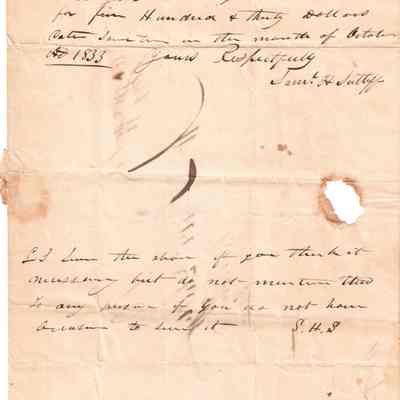 for five Hundred & thirty Dollars
in the month of October
AD 1833 Yours Respectfully
Saml. H Sutliff
the above if you think it
necessary but do not mention this
to any person if you do not have
occasion to use it S. H. S